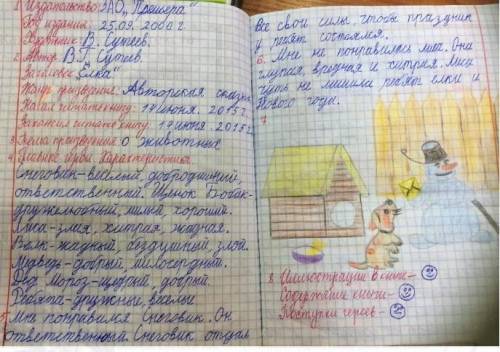 1. Издательство: ЗАО „Премьера"
Год издания: 25.09. 2000 г.
Художник: В. Сутеев.
2. Автор: В.Г. Сутеев.
Заголовок „Ёлка"
Жанр произведения: Авторская сказка
Начал читать книгу: 14 июня. 2015 г.
Закончил читать книгу: 14 июня. 2015 г.
3. Тема произведения: О животных
4. Главные герои. Характеристика
Снеговик-весёлый, добродушный,
ответственный. Щенок Бобик-
дружелюбный, милый, хороший.
Лиса-злая, хитрая, жадная.
Волк-жадный, бездушный, злой.
Медведь-добрый, милосердный.
Дед Мороз-щедрый, добрый.
Ребята-дружные, весёлые
5. Мне понравился Снеговик. Он
ответственный. Снеговик отдал
Все свои силы, чтобы праздник
у ребят состоялся.
6. Мне не понравилась лиса. Она
глупая, вредная и хитрая. Лиса
чуть не лишила ребят ёлки и
Нового года.
7
8. Иллюстрации в книге-
Содержание книги-
Поступки героев-